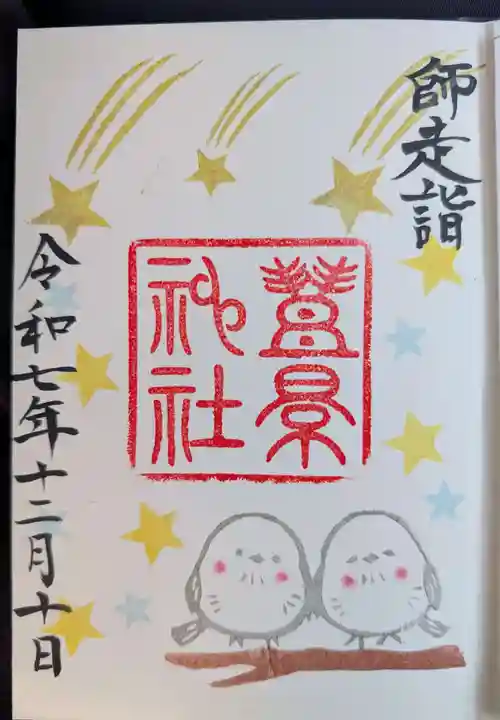 師走詣
豊景
神社
令和七年十二月十日